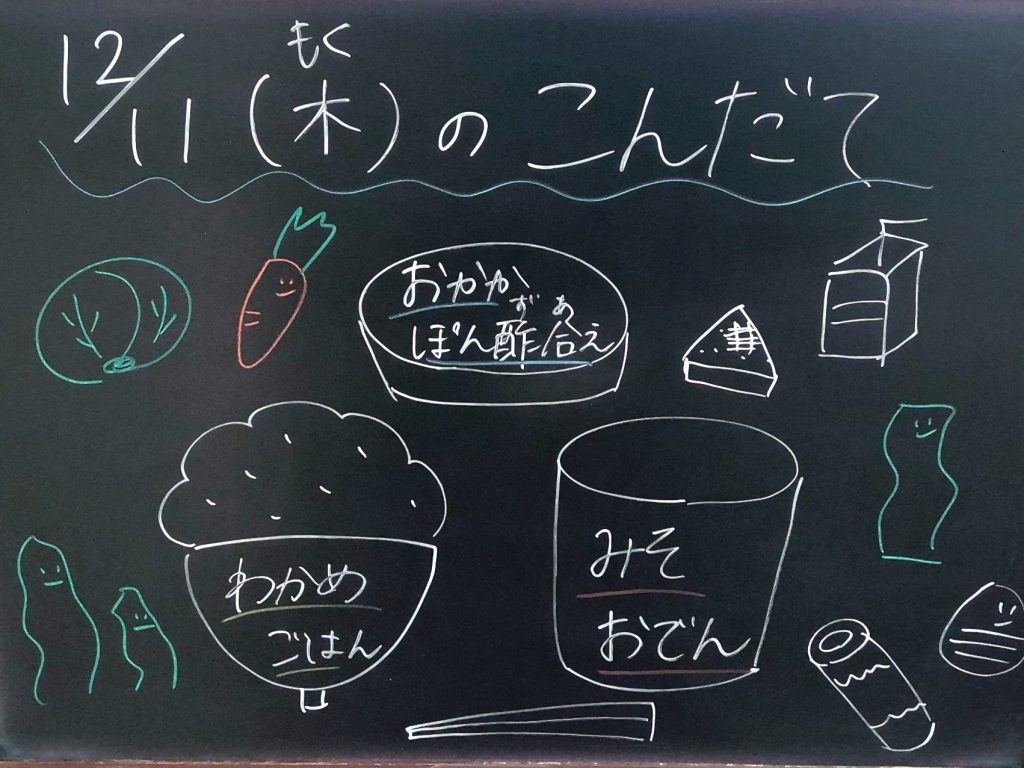 もく
12/11(木)のこんだて
おかか
ずあ
ぽん酢合え
わかめ
ごはん
みそ
おでん